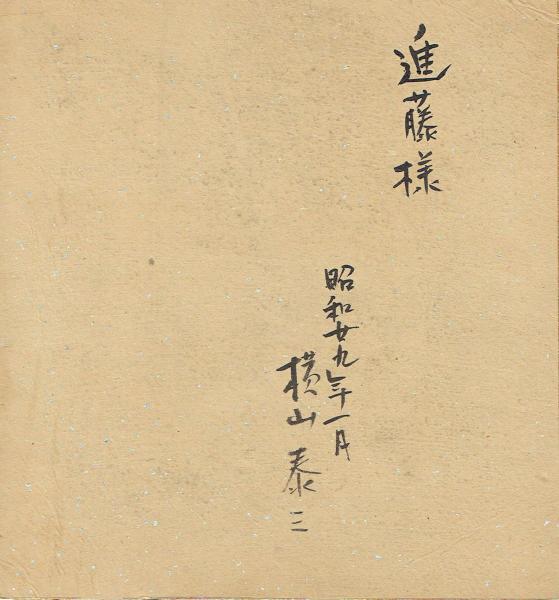 進藤様
昭和廿九年一月
横山泰三